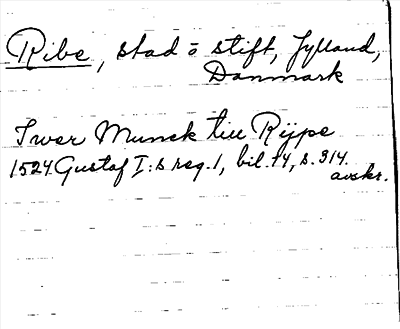 Ribe, stad o stift, Jylland,
Danmark
Iwer Munck till Rijpe
1524. Gustaf I:s reg. 1, bil. 14, s. 314.
avskr.